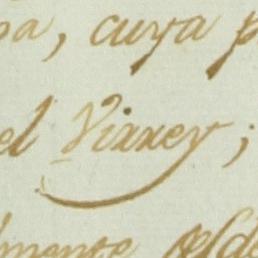 pa, cuya p
el Virrey;
lmente